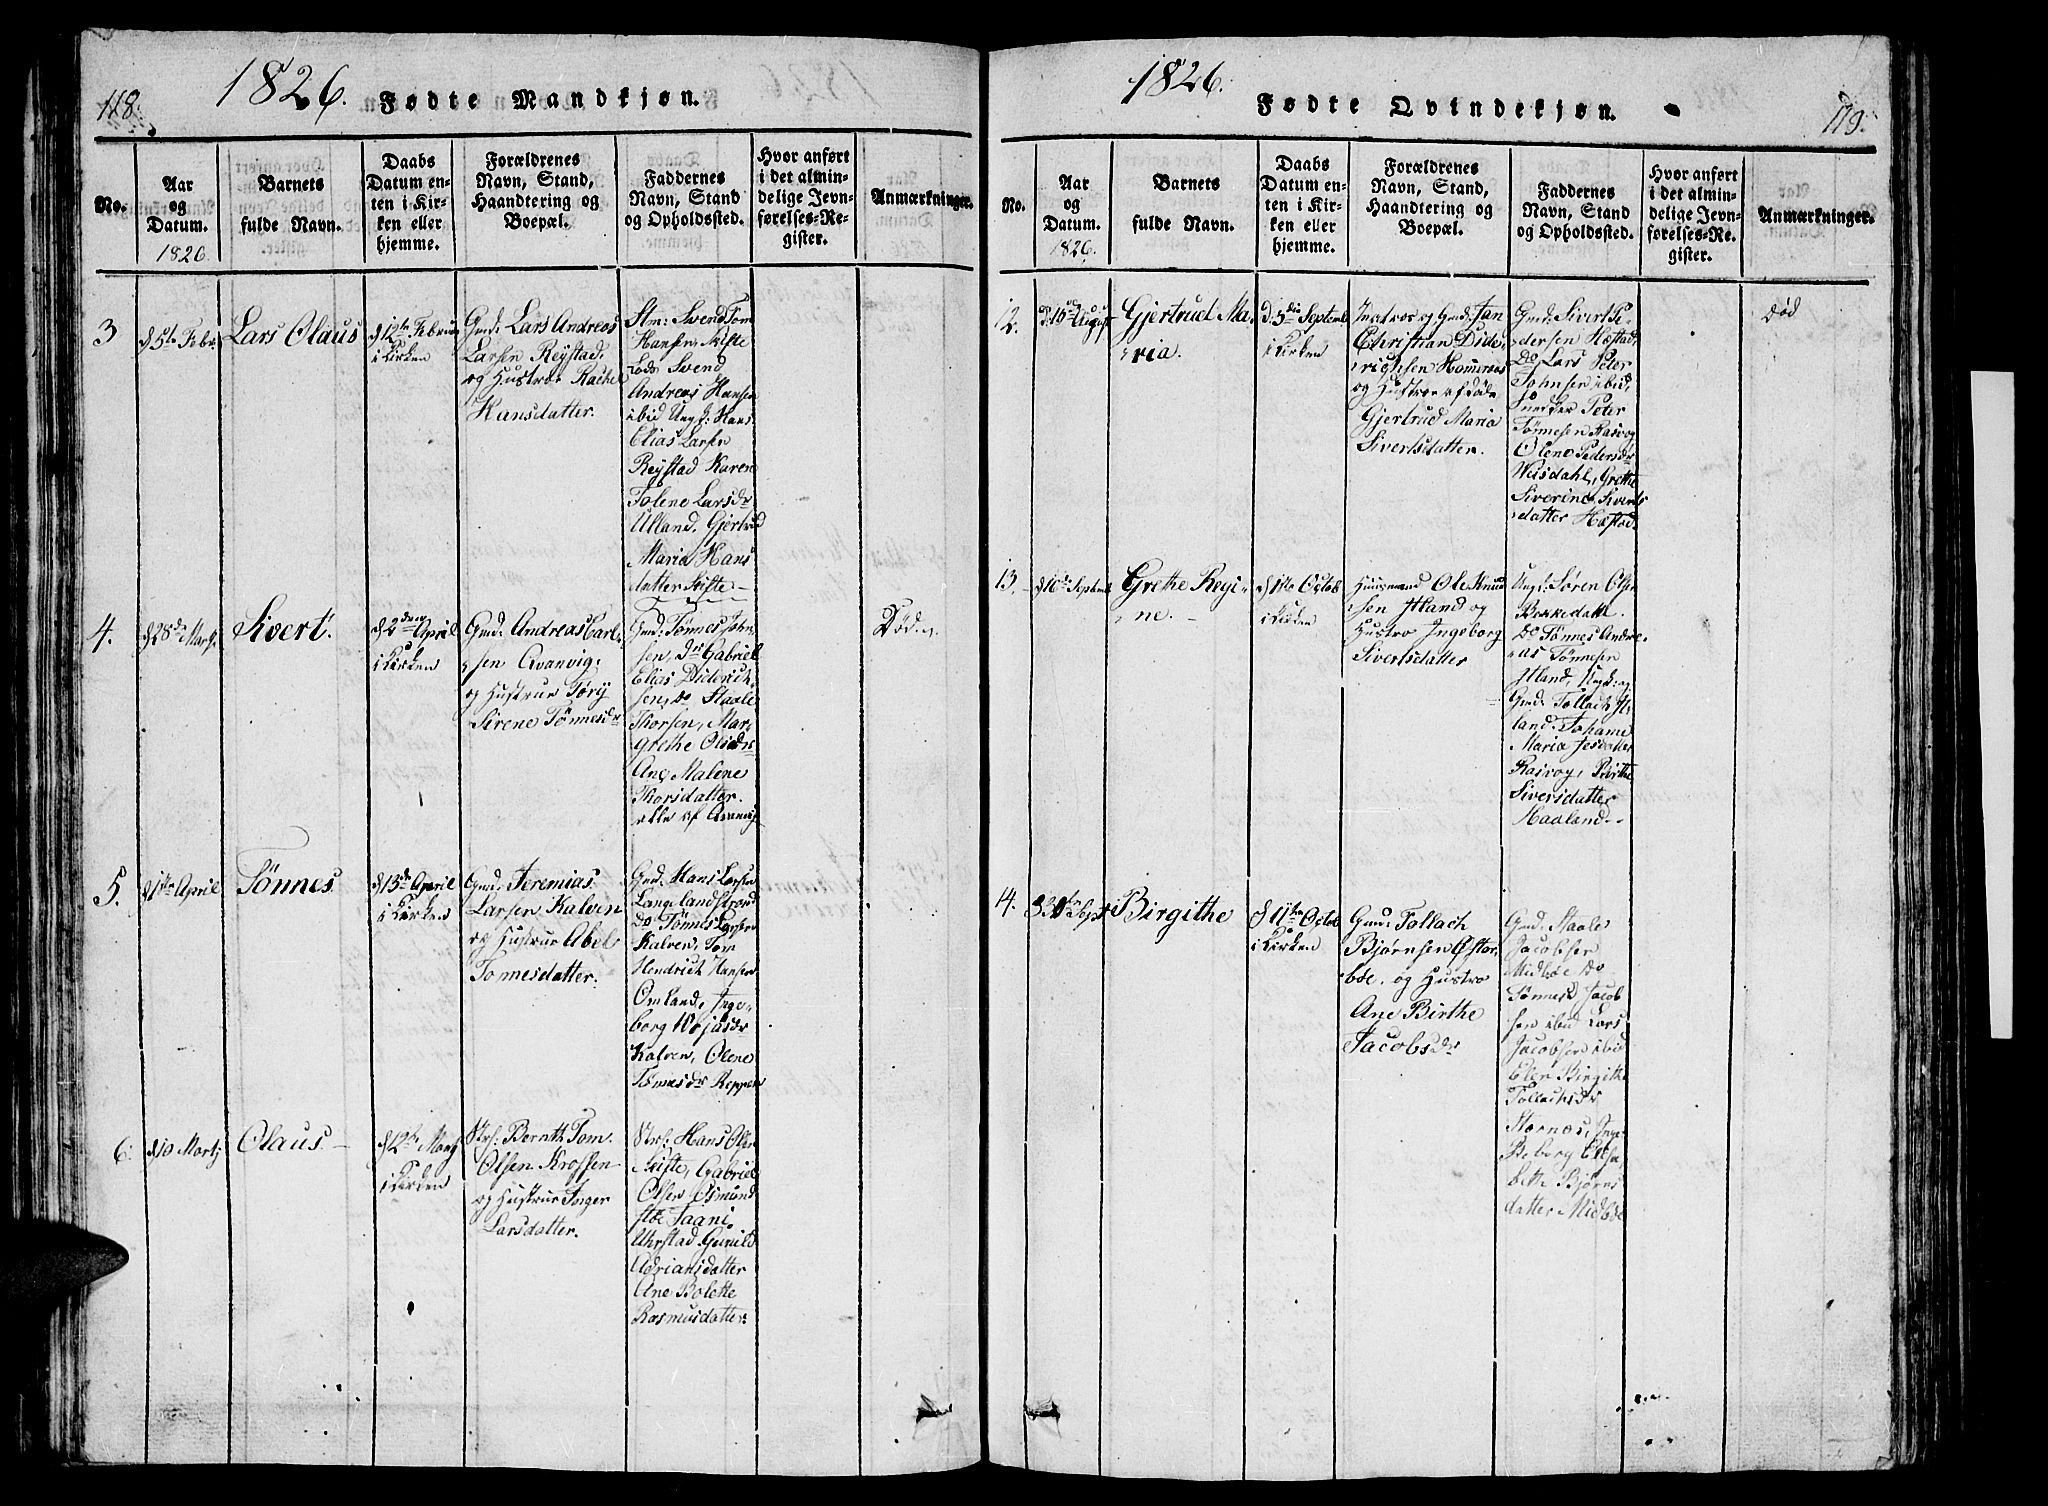 118.
1826. Fødte Mandkjøn.
No.
Aar
og
Datum.
1826.
Barnets
fulde Navn.
Daabs
Datum en-
ten i Kir-
ken eller
hjemme.
Forældrenes
Navn, Stand,
Haandtering og
Boepæl.
Faddernes
Navn, Stand
og Opholdssted.
Hvor anført
i det almin-
delige Jevn-
førelses-Re-
gister.
Anmærkninger.
3
d 5te Febr:
Lars Olaus
d 12te Februar
i Kirken
Gmd: Lars Andreas
Larsen Reystad.
og Hustroe Rachel
Hansdatter.
Stm: Svend Tom
Hansen, Skifte
Lods Svend
Andreas Hansen
ibid Ungk: Hans
Elias Larsen
Reystad Karen
Tolene Larsdr
Ulland. Gjertrud
Maria Hans
datter Skifte
4.
d 28de Marts
Sivert.
d 2den April
i Kirken
Gmd: Andreas Carl-
sen Qvanvig:
og Hustrue Tøry
Sirene Tønnesdr
Gmd: Tønnes John-
sen, do Gabriel
Elias Diderich
sen, do Staale
Thorsen, Mar-
grethe Olsdr
Ane Malene
Thorsdatter.
alle af Qvanvig
Død.
5.
d 1ste April
Tønnes
d 13de April
i Kirken
Gmd. Jeremias
Larsen Kalven
og Hustrue Abel
Tønnesdatter.
Gmd. Hans Larsen
Langelandstrand
do Tønnes Larsen
Kalven, Tom
Hendrich Hansen
Omland, Inge-
borg
Kalven, Olene
Tønnesdr Reppen
6.
d 10 Martj
Olaus.
d 12te Martj
i Kirken
Strs: Bernth Tom
Olsen Krossen
og Hustrue Inger
Larsdatter.
Strs: Hans Olsen
Skifte, Gabriel
Olsen Osmund
støe Taani
Uhrstad Gunild
Adriansdatter
Ane Bolette
Rasmusdatter.
1826.
Fødte Qvindekjøn.
119.
No.
Aar
og
Datum.
1826.
Barnets
fulde Navn.
Daabs
Datum en-
ten i Kir-
ken eller
hjemme.
Forældrenes
Navn, Stand,
Haandtering og
Boepæl.
Faddernes
Navn, Stand
og Opholdssted.
Hvor anført
i det almin-
delige Jevn-
førelses-Re-
gister.
Anmærkninger.
12.
August
Gjertrud Ma-
ria.
d. 5te Septemb
i Kirken
og Gmd: Jan
Christian Dide-
richsen Homeraas
og Hustroe afdøde
Gjertrud Maria
Sivertsdatter.
Gmd: Sivert Pe-
dersen Hæstad,
Do Lars Peter
Johnsen ibid,
Peter
Tønnesen Rasvog
Olene Pedersdr
Weisdahl, Grethe
Siverine Siverts
datter Hæstad
død
13.
d 16de Septemb
Grethe Regi-
ne.
d 1ste Octob
i Kirken
Huusmand Ole Knud
sen Itland og
Hustro Ingeborg
Sivertsdatter
Ungk: Søren Olsen
Bekkedahl.
Do Tønnes Andre-
as Tønnesen
Itland, Ungk: og
Gmd: Tollach It-
land. Johanne
Maria Jesdatter
Rasvog, Birthe
Siversdatter
Haaland.
14.
Sept
Birgithe
Octob
i Kirken
Gmd: Tollach
Bjørnsen Østen-
bøe. og Hustro
Ane Birthe
Jacobsdr
Gmd. Staale
Jacobsen
Midbøe Do
Tønnes Jacob
sen ibid Lars
Jacobsen ibid
Elen Birgithe
Tollachsdr
Stornæs, Inge
Beborg Elisa-
beth Bjørns
datter Midbøe